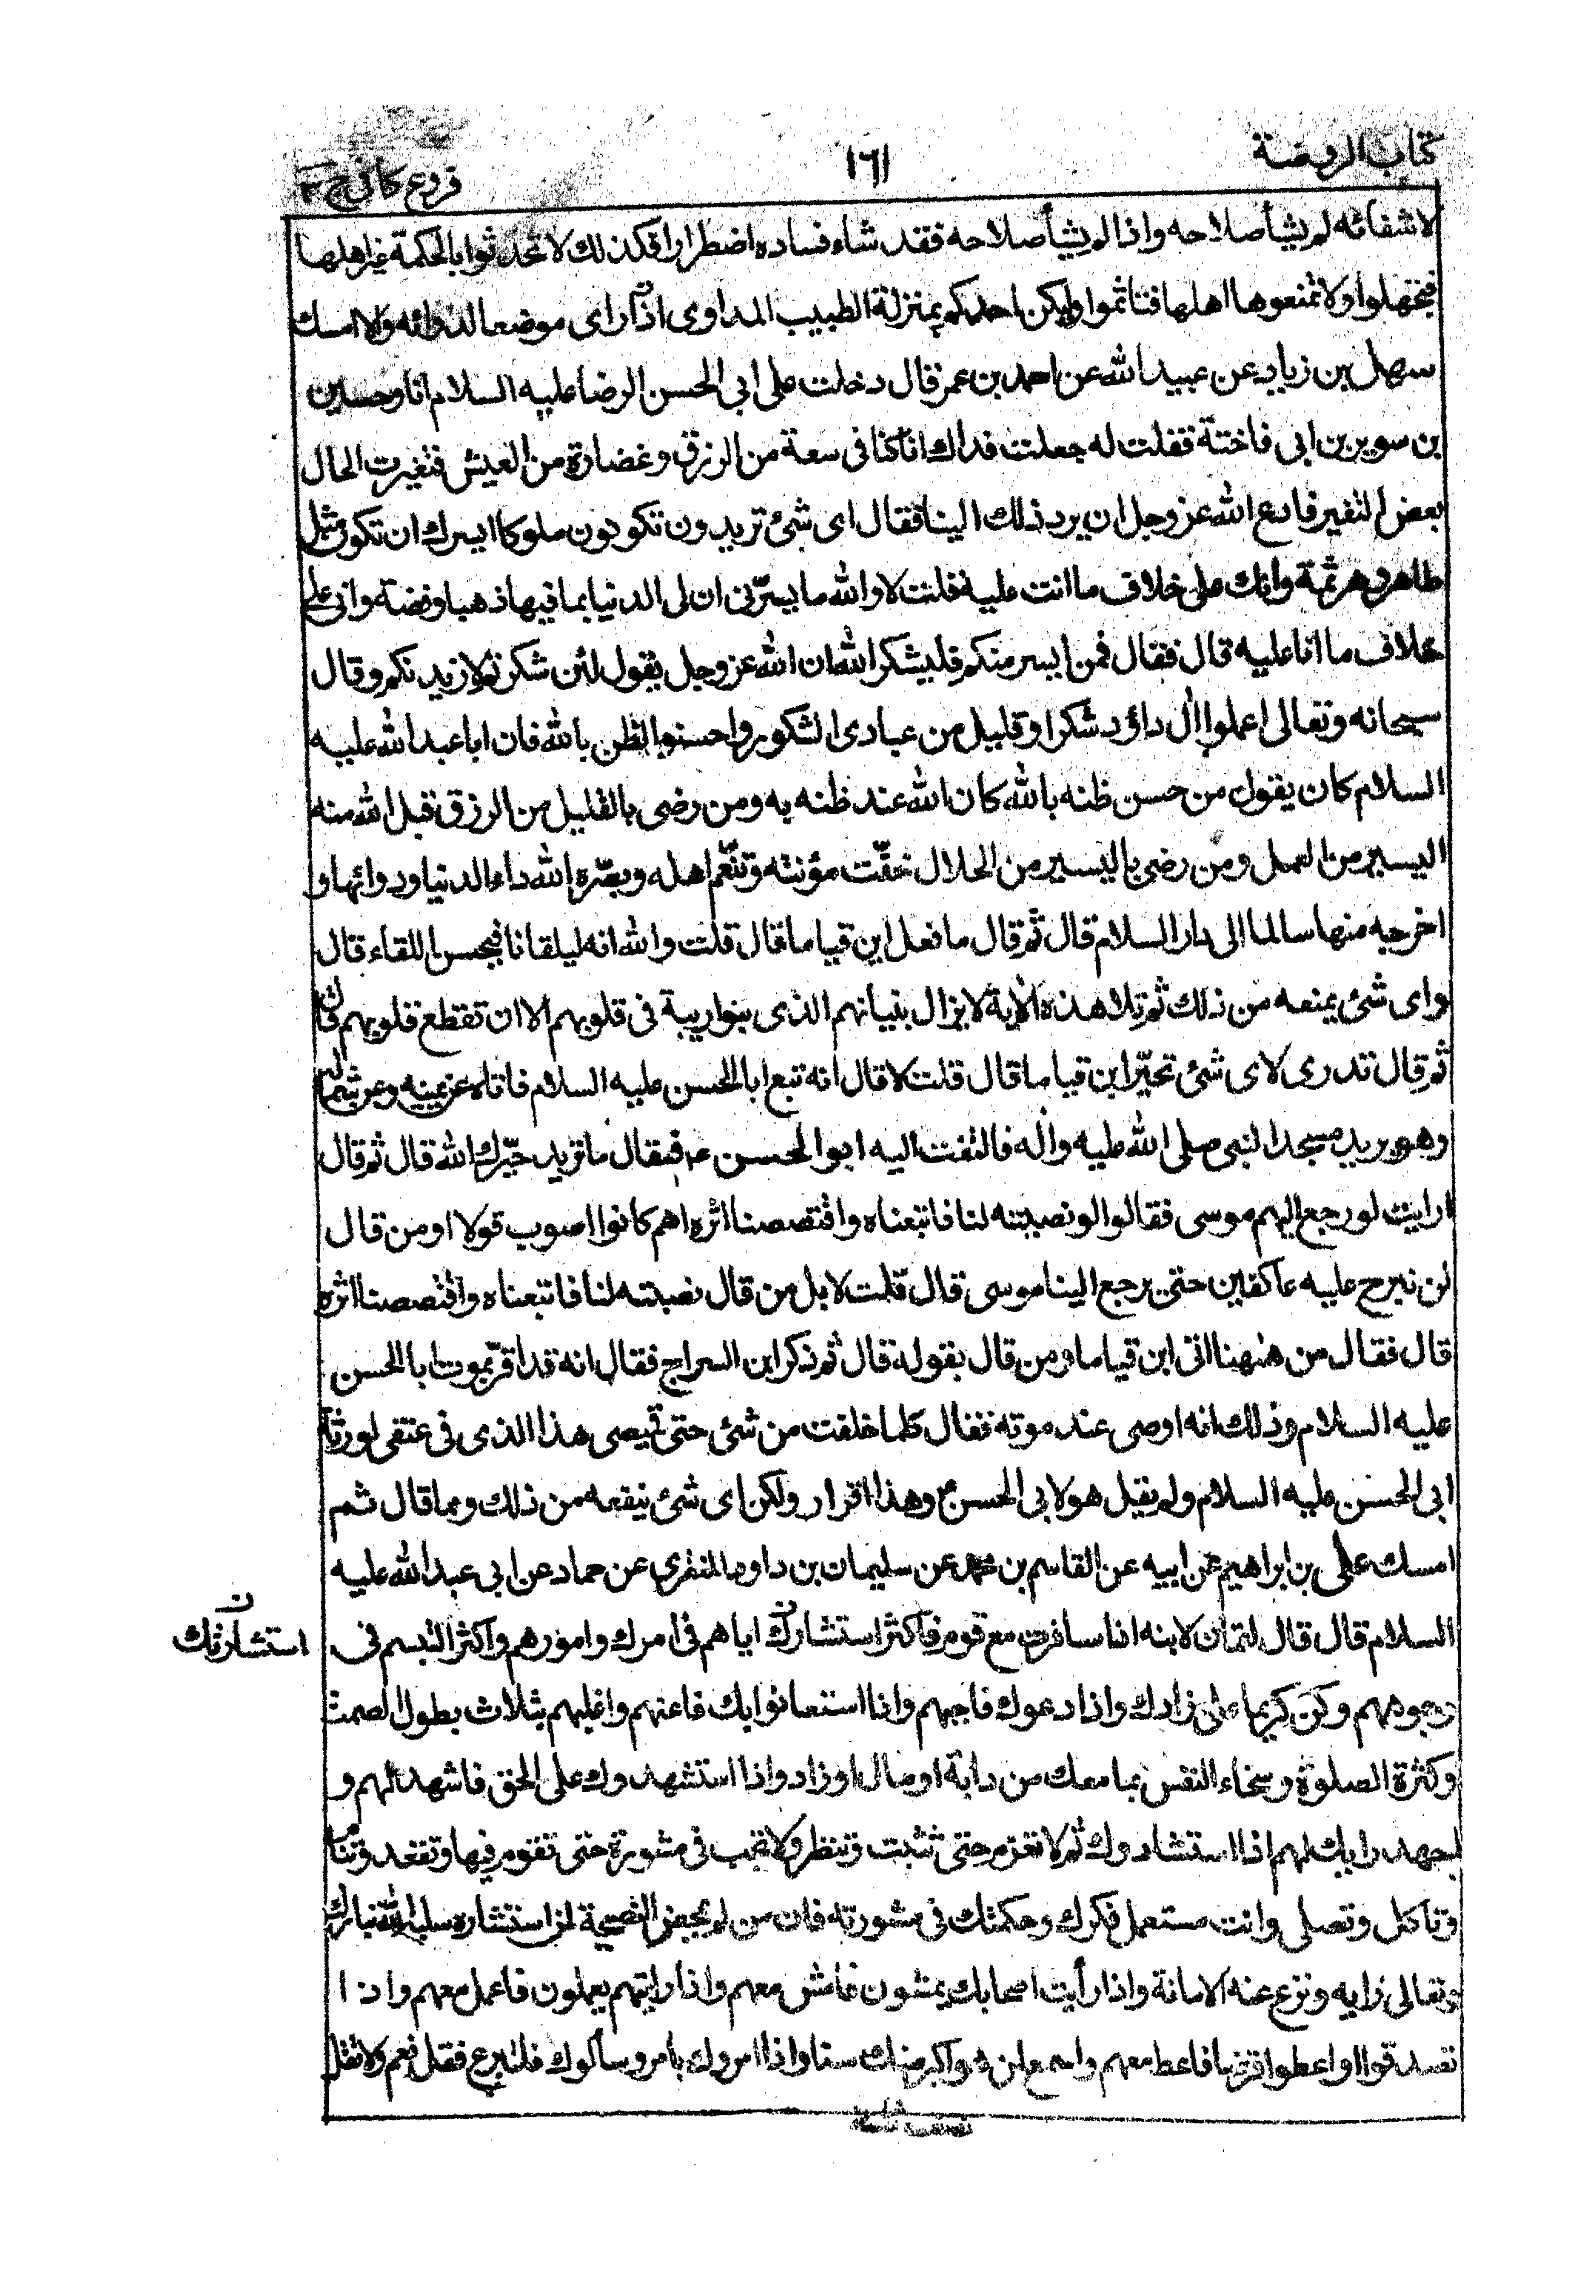 كتاب الروضة
١٦١
فروع كافى ج ٣
لاشفائه لم يشأ صلاحه واذا لم يشأ صلاحه فقد شاء فساده اضطرارا فكذلك لا تحدثوا بالحكمة غير اهلها
فتجهلوا ولا تمنعوها اهلها فتأثموا وليكن احدكم بمنزلة الطبيب المداوى اذا راى موضعا لدوائه والا امسك
سهل بن زياد عن عبيد الله عن احمد بن عمر قال دخلت على ابى الحسن الرضا عليه السلام انا وحسين
بن سوير بن ابى فاختة فقلت له جعلت فداك انا كنا فى سعة من الرزق وغضارة من العيش فتغيرت الحال
بعض التغير فادع الله عز وجل ان يرد ذلك الينا فقال اى شئ تريدون تكونون ملوكا ايسرك ان تكون مثل
طاهر وهرثمة وانك على خلاف ما انت عليه فلت لا والله ما يسرّنى ان لى الدنيا بما فيها ذهبا وفضة وانى على
خلاف ما انا عليه قال فقال فمن ايسر منكم فليشكر الله ان الله عز وجل يقول لئن شكرتم لازيدنكم وقال
سبحانه وتعالى اعملوا ال داؤد شكرا وقليل من عبادى الشكور واحسنوا الظن بالله فان ابا عبد الله عليه
السلام كان يقول من حسن ظنه بالله كان الله عند ظنه به ومن رضى بالقليل من الرزق قبل الله منه
اليسير من العمل ومن رضى باليسير من الحلال خفّت مؤنته وتنعّم اهله وبصّره الله داء الدنيا ودوائها و
اخرجه منها سالما الى دار السلام قال ثم قال ما فعل ابن قياما قال قلت والله انه ليلقانا فيحسن اللقاء قال
واى شئ يمنعه من ذلك ثم تلا هذه الاية لا يزال بنيانهم الذى بنوا ريبة فى قلوبهم الا ان تقطع قلوبهم قال
ثم قال تدرى لاى شئ تحيّر ابن قياما قال قلت لا قال انه تبع ابا الحسن عليه السلام فاتاه عن يمينه وعن شماله
وهو يريد مسجد النبى صلى الله عليه واله فالتفت اليه ابو الحسن ع فقال ما تريد حيّرك الله قال ثم قال
ارايت لو رجع اليهم موسى فقالوا لو نصبته لنا فاتبعناه واقتصصنا اثره اهم كانوا اصوب قولا او من قال
لن نبرح عليه عاكفين حتى يرجع الينا موسى قال قلت لا بل من قال نصبته لنا فاتبعناه واقتصصنا اثره
قال فقال من ههنا اتى ابن قياما ومن قال بقوله قال ثم ذكر ابن السراج فقال انه قد اقرّ بموت ابا الحسن
عليه السلام وذلك انه اوصى عند موته فقال كلما خلفت من شئ حتى قميصى هذا الذى فى عنقى لورثة
ابى الحسن عليه السلام ولم يقل هو لابى الحسن ع وهذا اقرار ولكن اى شئ ينفعه من ذلك ومما قال ثم
امسك على بن ابراهيم عن ابيه عن القاسم بن محمد عن سليمان بن داود المنقرى عن حماد عن ابى عبد الله عليه
السلام قال قال لقمان لابنه اذا سافرت مع قوم فاكثر استشارتك اياهم فى امرك وامورهم واكثر التبسم فى
ن
استشارتك
وجوههم وكن كريما على زادك واذا دعوك فاجبهم واذا استعانوا بك فاعنهم واغلبهم بثلاث بطول الصمت
وكثرة الصلوة وسخاء النفس بما معك من دابة او مال او زاد واذا استشهدوك على الحق فاشهد لهم و
اجهد رايك لهم اذا استشاروك ثم لا تعزم حتى تثبت وتنظر ولا تجب فى مشورة حتى تقوم فيها وتقعد وتنام
وتاكل وتصلى وانت مستعمل فكرك وحكمتك فى مشورته فان من لم يمحض النصيحة لمن استشاره سلبه الله تبارك
وتعالى رايه ونزع عنه الامانة واذا رأيت اصحابك يمشون فامش معهم واذا رايتهم يعملون فاعمل معهم واذا
تصدقوا او اعطوا قرضا فاعط معهم واسمع لمن هو اكبر منك سنا واذا امروك بامر وسألوك فتبرع فقل نعم ولا تقل